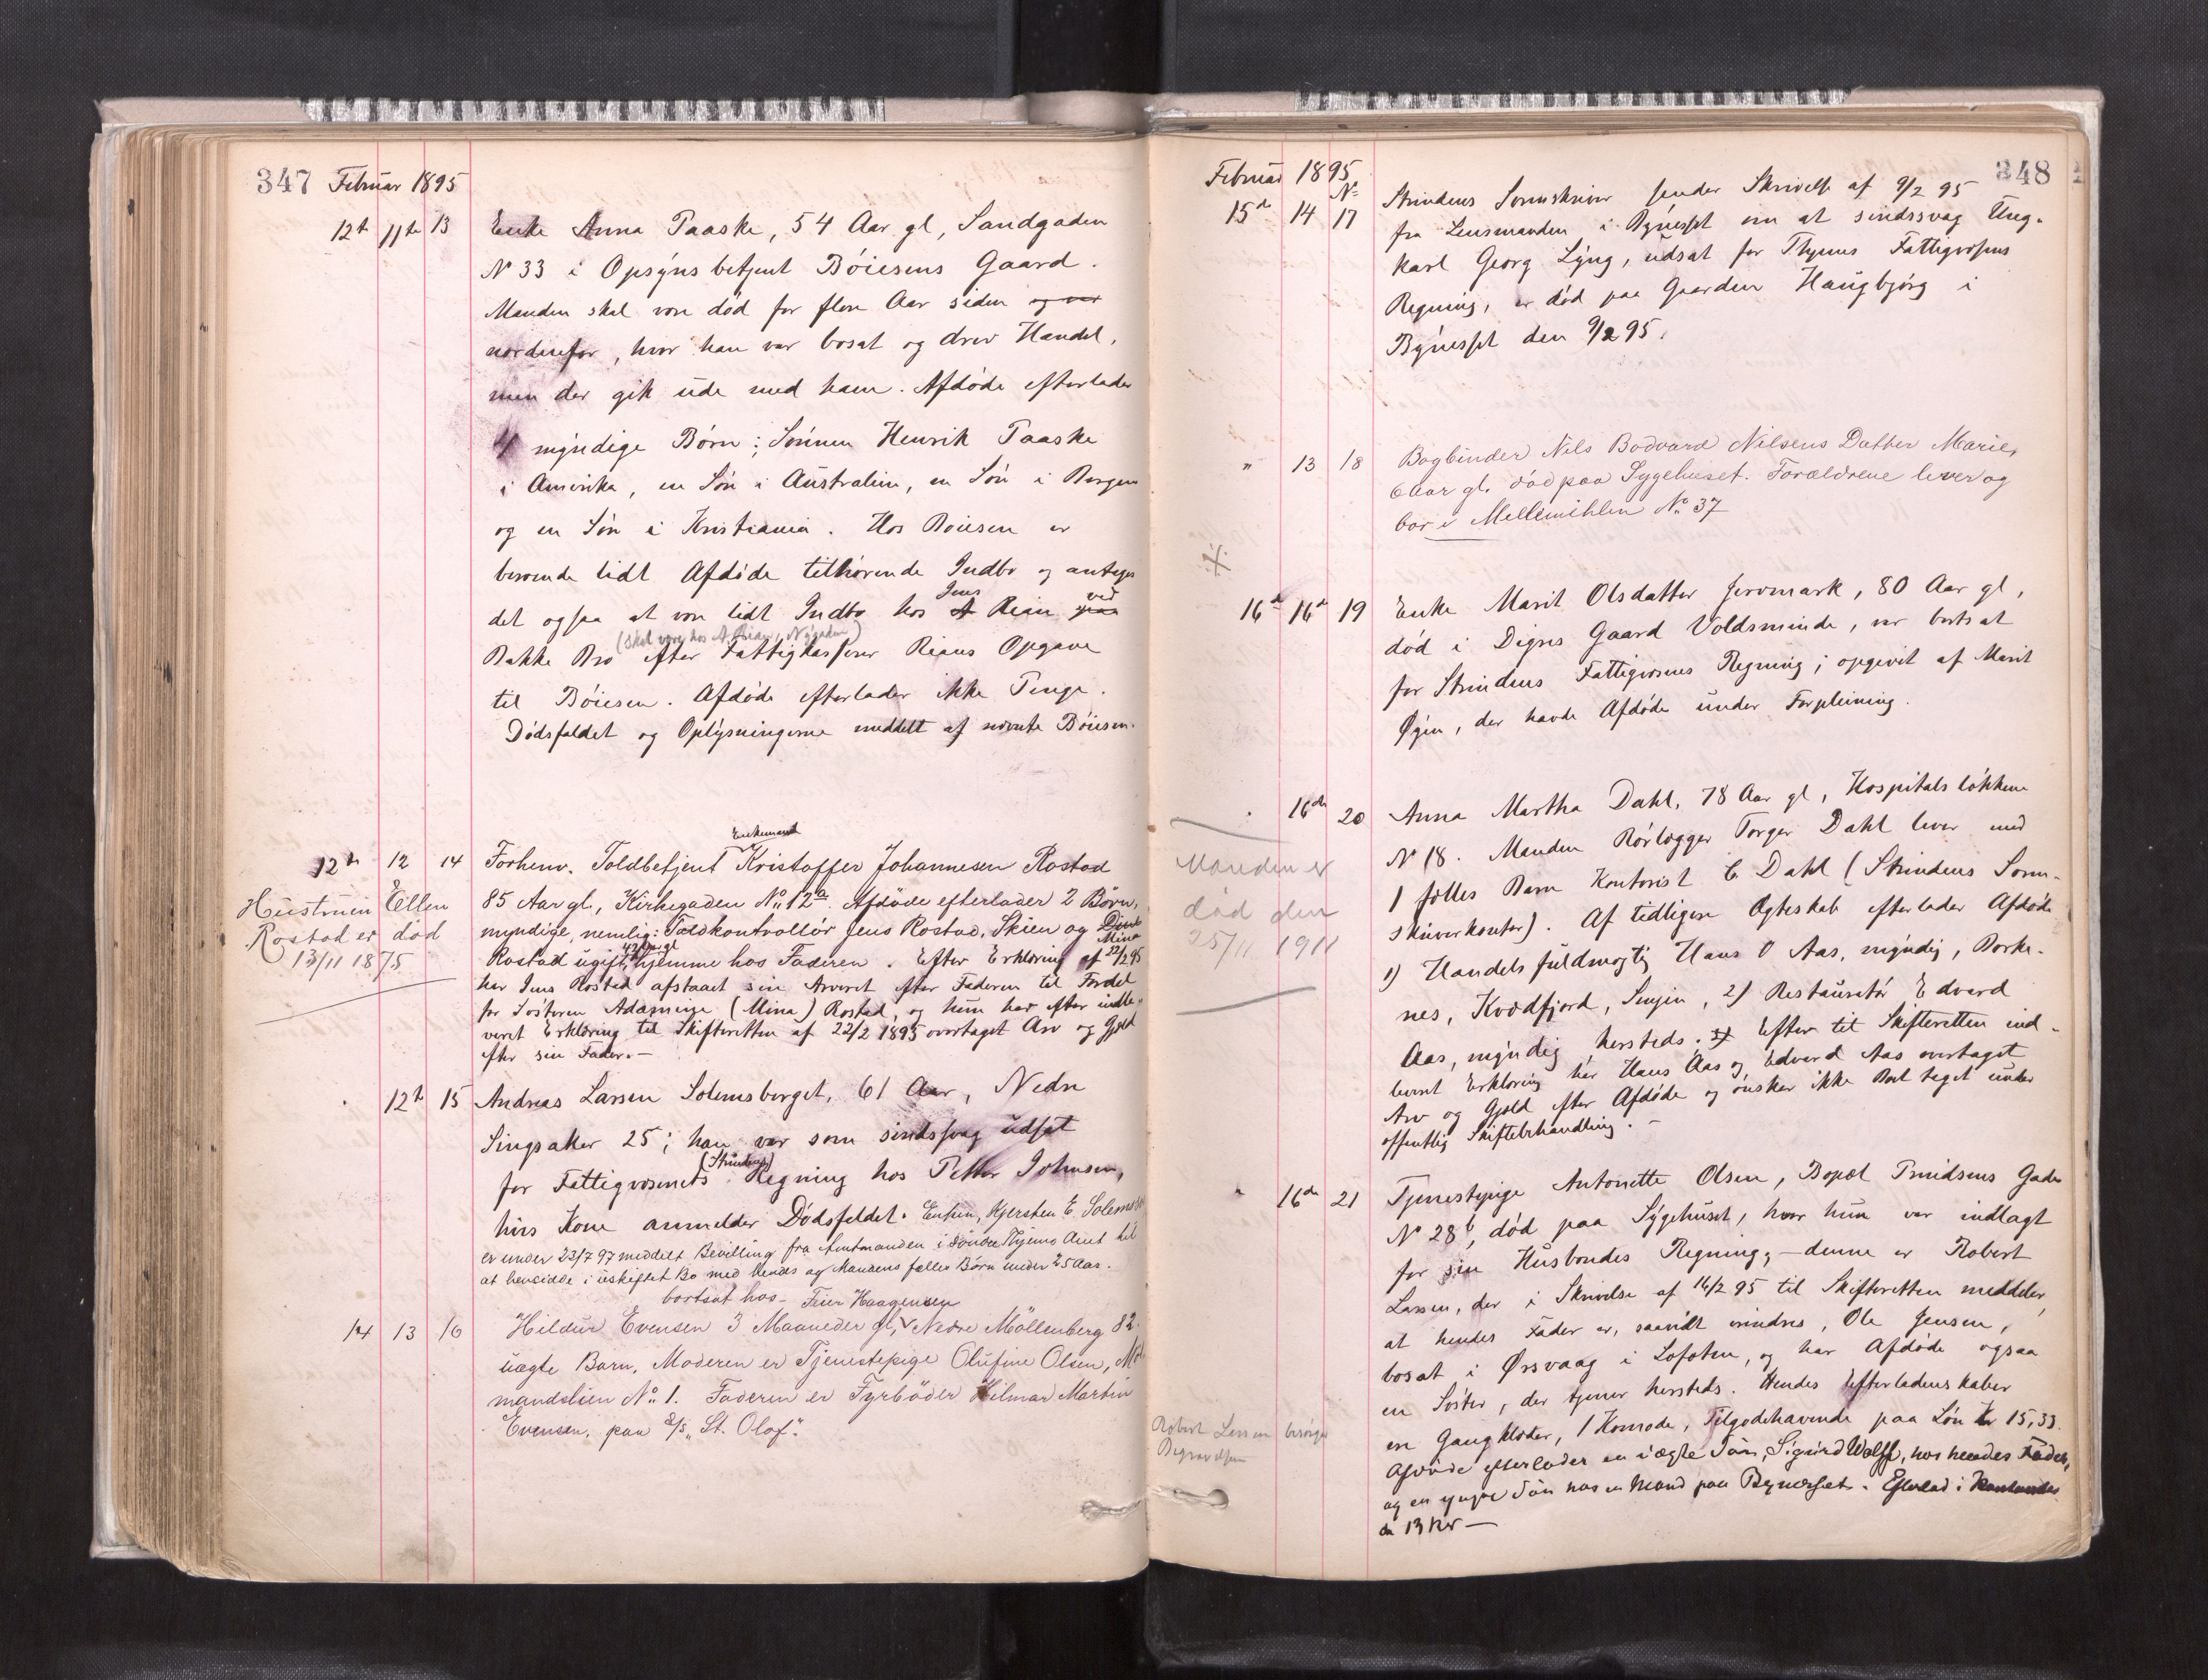 347 Februar 1895
12te 11te 13 Enke Anna Paaske, 54 Aar gl, Sandgaden
No 33 i Opsynsbetjent Böiesens Gaard.
Manden skal være död for flere Aar siden og var
nordenfor, hvor han var bosat og drev Handel,
men der gik ude med ham. Afdöde efterlader
4 myndige Börn: Sönnen Henrik Paaske
i Amerika, en Sön i Australien, en Sön i Bergen
og en Sön i Kristiania. Hos Böiesen er
beroende lidt Afdöde tilhörende Indbo og antages
det ogsaa at være lidt Indbo hos A Jens Rian paa ved
(skal være hos A. Rian, Nygaden)
Bakke Bro efter Fattigkasserer Rians Opgave
til Böiesen. Afdöde efterlader ikke Penge.
Dödsfaldet og Oplysningerne meddelt af nævnte Böiesen.
Enkemand
12te 12 14 Forhenv. Toldbetjent Kristoffer Johannesen Rostad
85 Aar gl., Kirkegaden No 12a. Afdöde efterlader 2 Börn,
Hustruen Ellen
Rostad er död
13/11 1875
myndige, nemlig: Toldkontrollör Jens Rostad, Skien og
Mina
Rostad ugift, 42 Aar gl hjemme hos Faderen. Efter Erklæring af 22/2 95
har Jens Rostad afstaaet sin Arveret efter Faderen til Fordel
for Sösteren (Mina) Rostad, og hun har efter indle-
veret Erklæring til Skifteretten af 22/2 1895 overtaget Arv og Gjeld
efter sin Fader.—
12te 15 Andreas Larsen Solemsberget, 61 Aar, Nedre
Singsaker 25; han var som sindssvag udsat
for Fattigvæsenets (Strindens) Regning hos Petter Johnsen,
hvis Kone anmelder Dödsfaldet. Enken, Kjersten E. Solemsb
er under 23/7 97 meddelt Bevilling fra Amtmanden i Söndre Thjems Amt til
at hensidde i uskiftet Bo med hendes og Mandens fælles Börn under 25 Aar.
bortsat hos Feier Haagensen
14 13 16 Hildur Evensen 3 Maaneder gl, Nedre Möllenberg 82.
uægte Barn, Moderen er Tjenestepige Olufine Olsen,
mandslien No 1. Faderen er Fyrböder Hilmar Martin
Evensen, paa S/S "St. Olaf".
348
Februar 1895
No
15de 14 17 Strindens Sorenskriver sender Skrivelse af 9/2 95
fra Lensmanden i Bynesset om at sindssvag Ung-
karl Georg Lyng, udsat for Thjems Fattigvæsens
Regning, er död paa Gaarden Haugbjörg i
Bynesset den 9/2 95.
" 13 18 Bogbinder Nils Bodvard Nilsens Datter Marie,
6 Aar gl. död paa Sygehuset. Forældrene lever og
bor i Mellemihlen No 37
16de 16de 19 Enke Marit Olsdatter Jervmark, 80 Aar gl,
död i Digres Gaard Voldsminde, var bortsat
for Strindens Fattigvæsens Regning; opgivet af Marit
Øyen, der havde Afdöde under Forpleining.
" 16de 20 Anna Martha Dahl, 78 Aar gl, Hospitalslökken
No 18. Manden Rörlægger Torger Dahl lever med
Manden er
död den
25/11 1911
1 fælles Barn Kontorist C Dahl (Strindens Soren-
skriverkontor). Af tidligere Ægteskab efterlader Afdöde
1) Handelsfuldmægtig Hans O Aas, myndig, Borke-
nes, Kvædfjord, Senjen, 2) Restauratör Edvard
Aas, myndig hersteds. Efter til Skifteretten ind-
leveret Erklæring har Hans Aas og Edvard Aas overtaget
Arv og Gjeld efter Afdöde og önsker ikke Boet taget under
offentlig Skiftebehandling.—
" 16de 21 Tjenestepige Antonette Olsen, Bopæl Gade
No 28b, död paa Sygehuset, hvor hun var indlagt
for sin Husbondes Regning,— denne er Robert
Larsen, der i Skrivelse af 16/2 95 til Skifteretten meddeler,
at hendes Fader er, saavidt erindres, Ole Jensen,
bosat i Ørsvaag i Lofoten, og har Afdöde ogsaa
en Söster, der tjener hersteds. Hendes Efterladenskaber
er Gangklæder, 1 Komode, Tilgodehavende paa Lön Kr 15,33.
Robert Larsen besörger
Begravelsen
Afdöde efterlader en uægte Sön, Sigurd Wolff, hos hendes Fader,
og en yngre Sön hos en Mand paa Bynesset. Efterlod i Kontanter
ca 13 Kr —